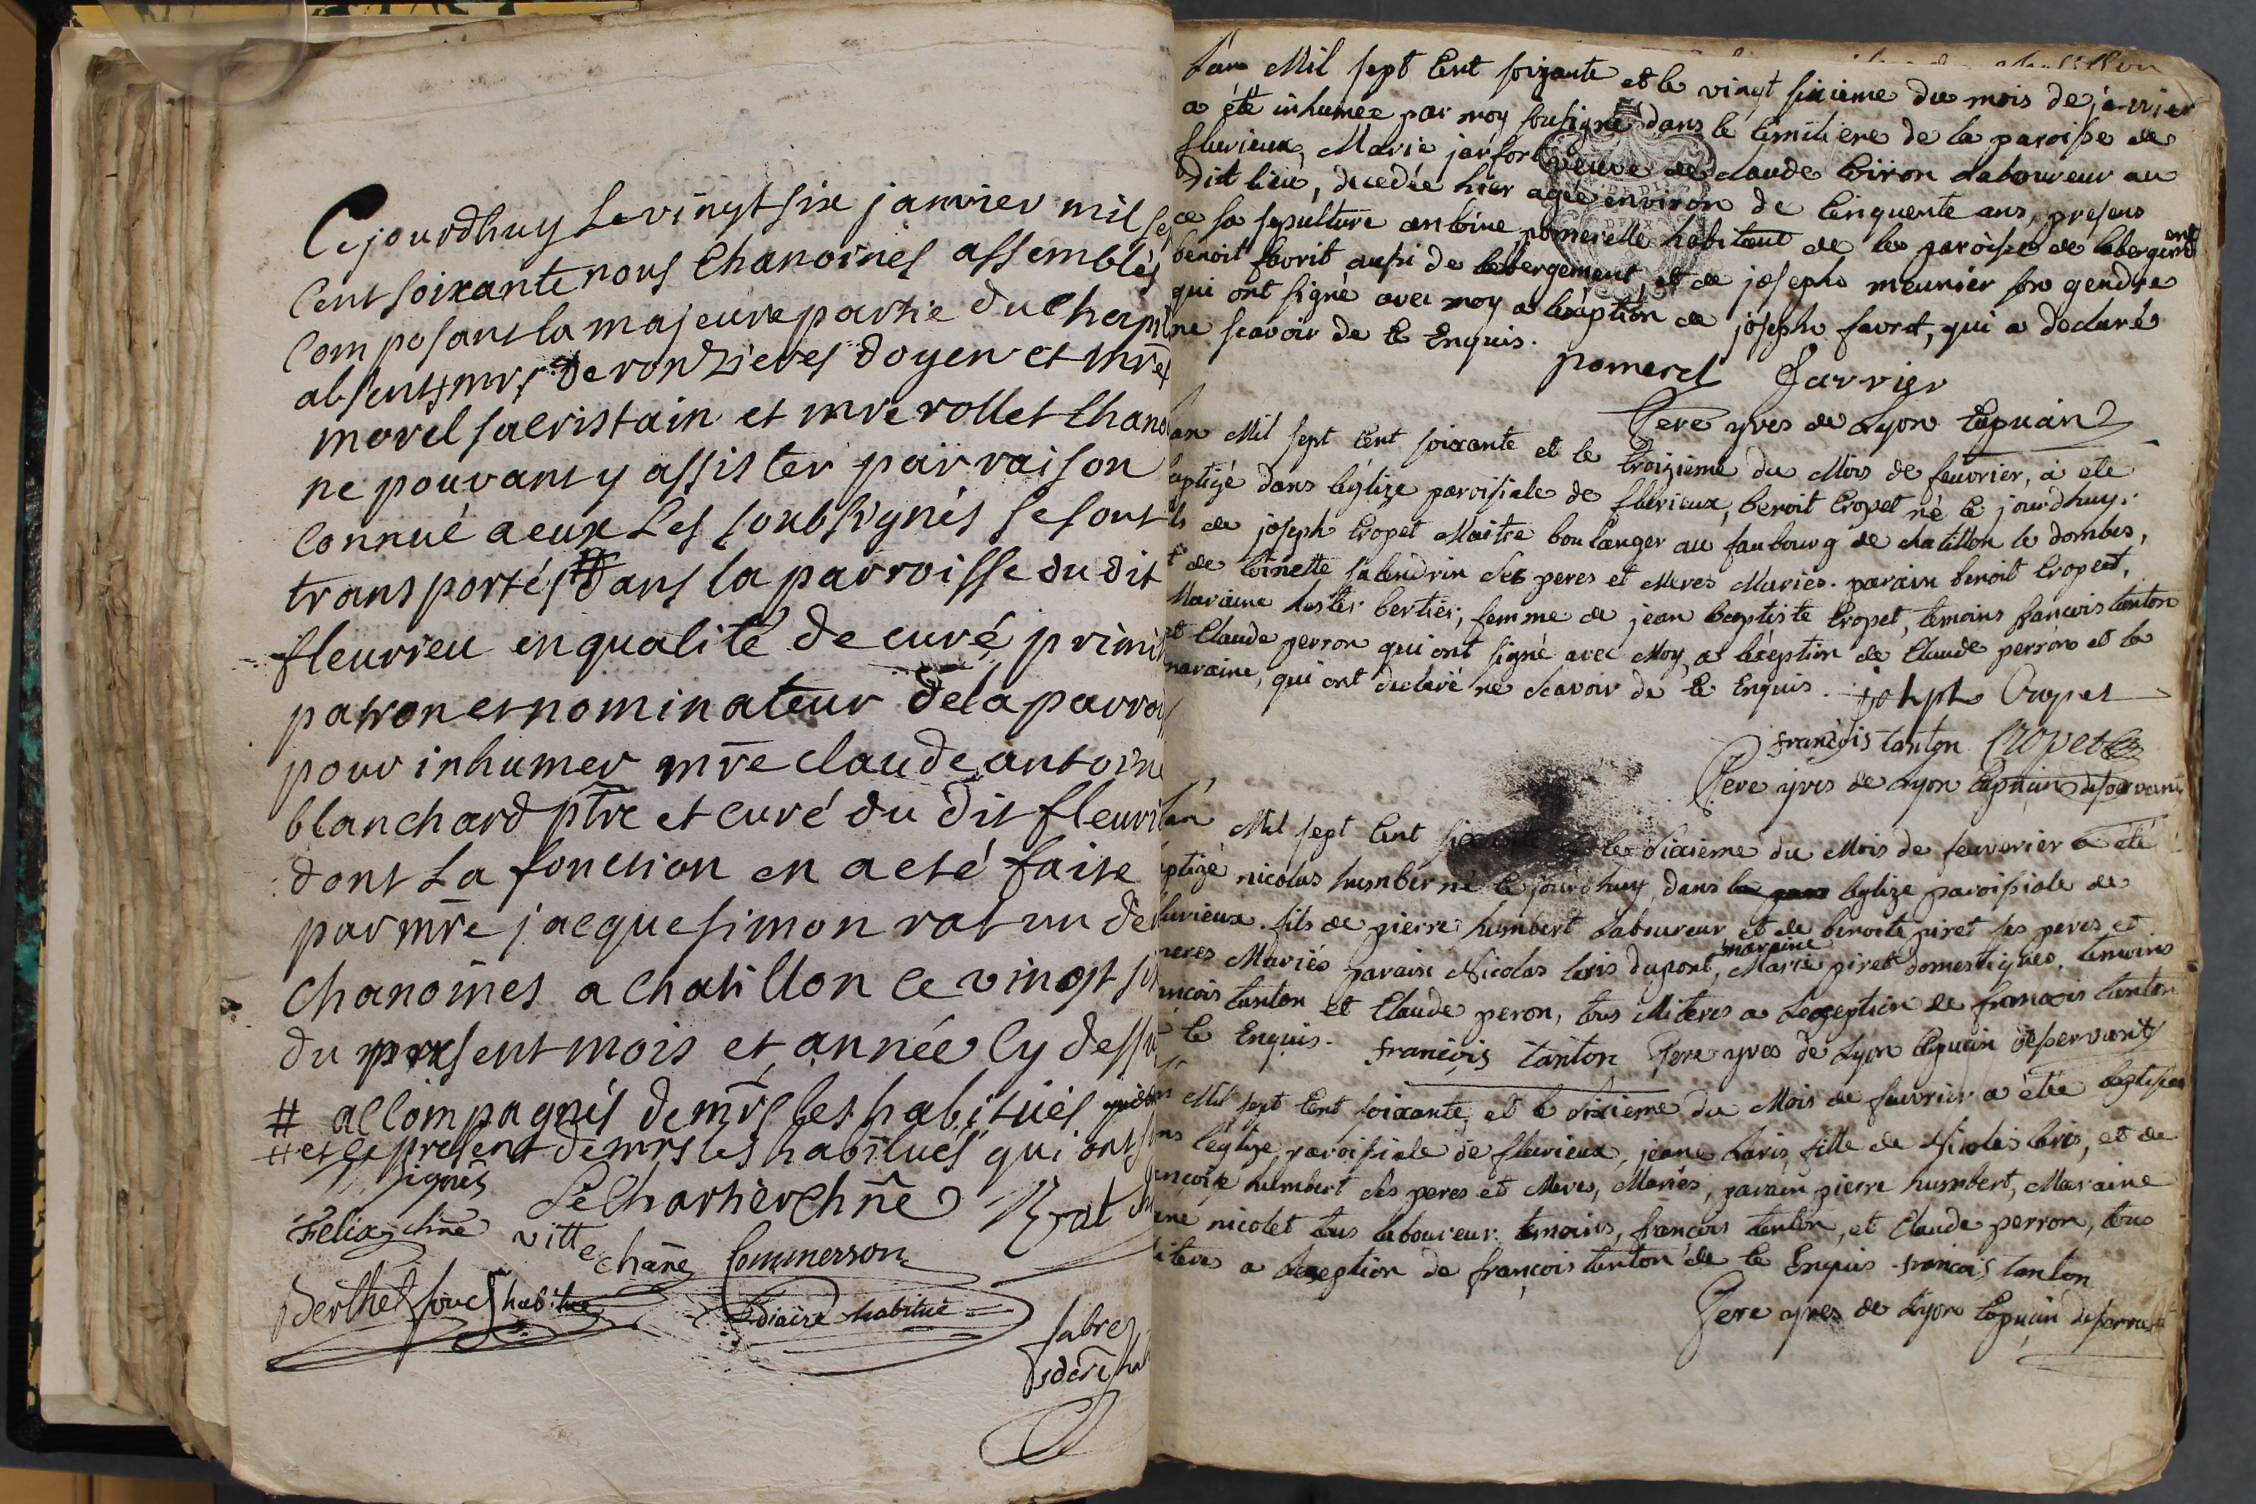 Cejourdhuy Le vingt six janvier mil sep
Cent soixante nous Chanoines assemblés
Composant la majeure partie du Chapit
absents mrs De ronzieres doyen et mre
morel sacristain et mre rollet Chano
ne pouvant y assister par raison
Connuë a eux Les soubsignés se sont
transportés # dans la parroisse du dit
fleurieu en qualité de curé primi
patron et nominateur de la parroi
pour inhumer mre claude antoine
blanchard ptre et curé du dit fleuri
dont La fonction en a eté faite
par mre jacque simon rat un de
chanoines a chatillon ce vingt si
du present mois et année Cy dessu
# accompagnés de mrs les habitués
# et en present de mrs les habitués qui ont
signés
Felix chne vitte chane Le Chartier Chne Rat
Commerson
Berthet habitué diacre habitué
fabre

L'an Mil sept Cent soizante et le vingt sixieme du mois de janvier
a été inhumée par moy sousigné dans le Cimitiere de la paroisse de
flurieux, Marie veuve de claude Biron Laboureur au
Dit lieu, decedée hier agée environ de Cinquente ans, presens
a sa sepulture antoine pomerelle habitant de la paroisse de labergement
benoit favrit aussi de labergement, et de joseph meunier son gendre
qui ont signé avec moy a léxception de joseph favrit, qui a declaré
ne scavoir de ce Enquis.
pomerel Farrier
Pere yves de Lyon Capucin
an Mil sept Cent soixante et le troizieme du Mois de feuvrier, a ete
aptizé dans léglize paroisiale de flurieux, benoit Cropet né ce jourdhuy.
ls de joseph Cropet Maitre boulanger au faubourg de chatillon le dombes,
t de toinette salendrin ses peres et Meres Mariés. parain benoit Cropet,
Maraine bertier, femme de jean Baptiste Cropet, temoins francois tanton
et Claude perron qui ont signé avec Moy, a léxception de Claude perron et la
maraine, qui ont declaré ne scavoir de ce Enquis. joseph Cropet
françois tanton Cropet
Pere yves de Lyon Capucin desservant
L'an Mil sept Cent le Sixieme du Mois de feuvrier a été
ptizé nicolas humber né ce jourdhuy, dans léglize paroissiale de
flurieux fils de pierre humbert Laboureur et de benoite piret ses peres et
meres Mariés parain Nicolas loris dupont, maraine Marie piret domestiques, temoins
ancois tanton et Claude peron, tous iliteres a Lexception de francois tanton
de ce Enquis. françois tanton Pere yves de Lyon Capucin desservant
Mil sept Cent soixante, et le Sixieme du Mois de feuvrier a étée baptisée
ns léglize paroisiale de flurieux, jeane Loris, fille de Nicolas loris, et de
ancoise humbert ses peres et Meres, Mariés, parain pierre humbert, Maraine
ane nicolet tous laboureur. temoins, françois tanton, et Claude perron, tous
iteres a lexception de françois tanton de ce Enquis. françois tanton
Pere yves de Lyon Capucin desservant